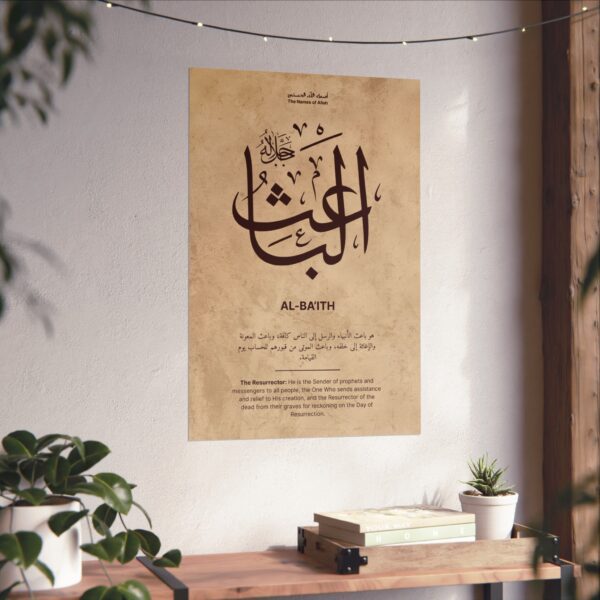 أسماء الله الحسنى
The Names of Allah
جل جلاله
الباعث
AL-BA'ITH
هو باعث الأنبياء والرسل إلى الناس كافة، وباعث المعونة
والإغاثة إلى خلقه، وباعث الموتى من قبورهم للحساب يوم
القيامة.
The Resurrector: He is the Sender of prophets and
messengers to all people, the One Who sends assistance
and relief to His creation, and the Resurrector of the
dead from their graves for reckoning on the Day of
Resurrection.